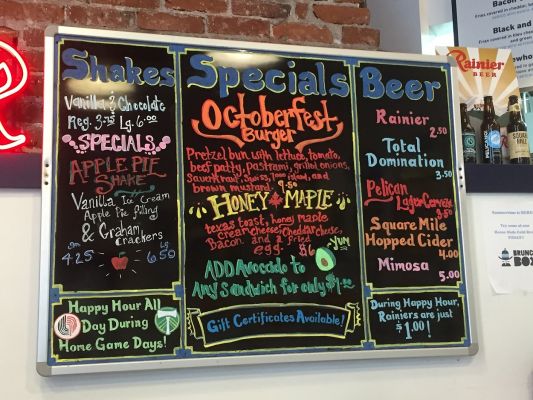 Shakes
Vanilla & Chocolate
Reg. 3.75 Lg. 6.00
SPECIALS
APPLE PIE
SHAKE
Vanilla Ice Cream
Apple Pie filling
& Graham
crackers
sm
425
lg
650
Happy Hour All
Day During
Home Game Days!
Specials
Octoberfest
Burger
Pretzel bun with lettuce, tomato,
beef patty, pastrami, grilled onions,
sauerkraut, swiss, 1000 island, and
brown mustard. 9.50
HONEY MAPLE
texas toast, honey maple
cream cheese, cheddar cheese,
Bacon, and a fried
egg. $6
YUM
ADD Avocado to
Any sandwich for only $1.00
Gift Certificates Available!
Beer
Rainier
2.50
Total
Domination
3.50
Pelican
Lager Cerveza
3.50
Square Mile
Hopped Cider
4.00
Mimosa
5.00
During Happy Hour,
Rainiers are just
$1.00!
Rainier
BEER
PELICAN
SQUARE
MILE
Black and
BRUNCH
BOX
R